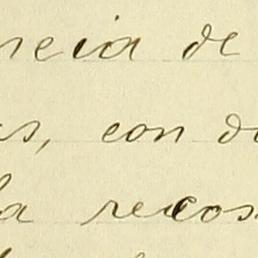 ncia de
as, con do
la recos